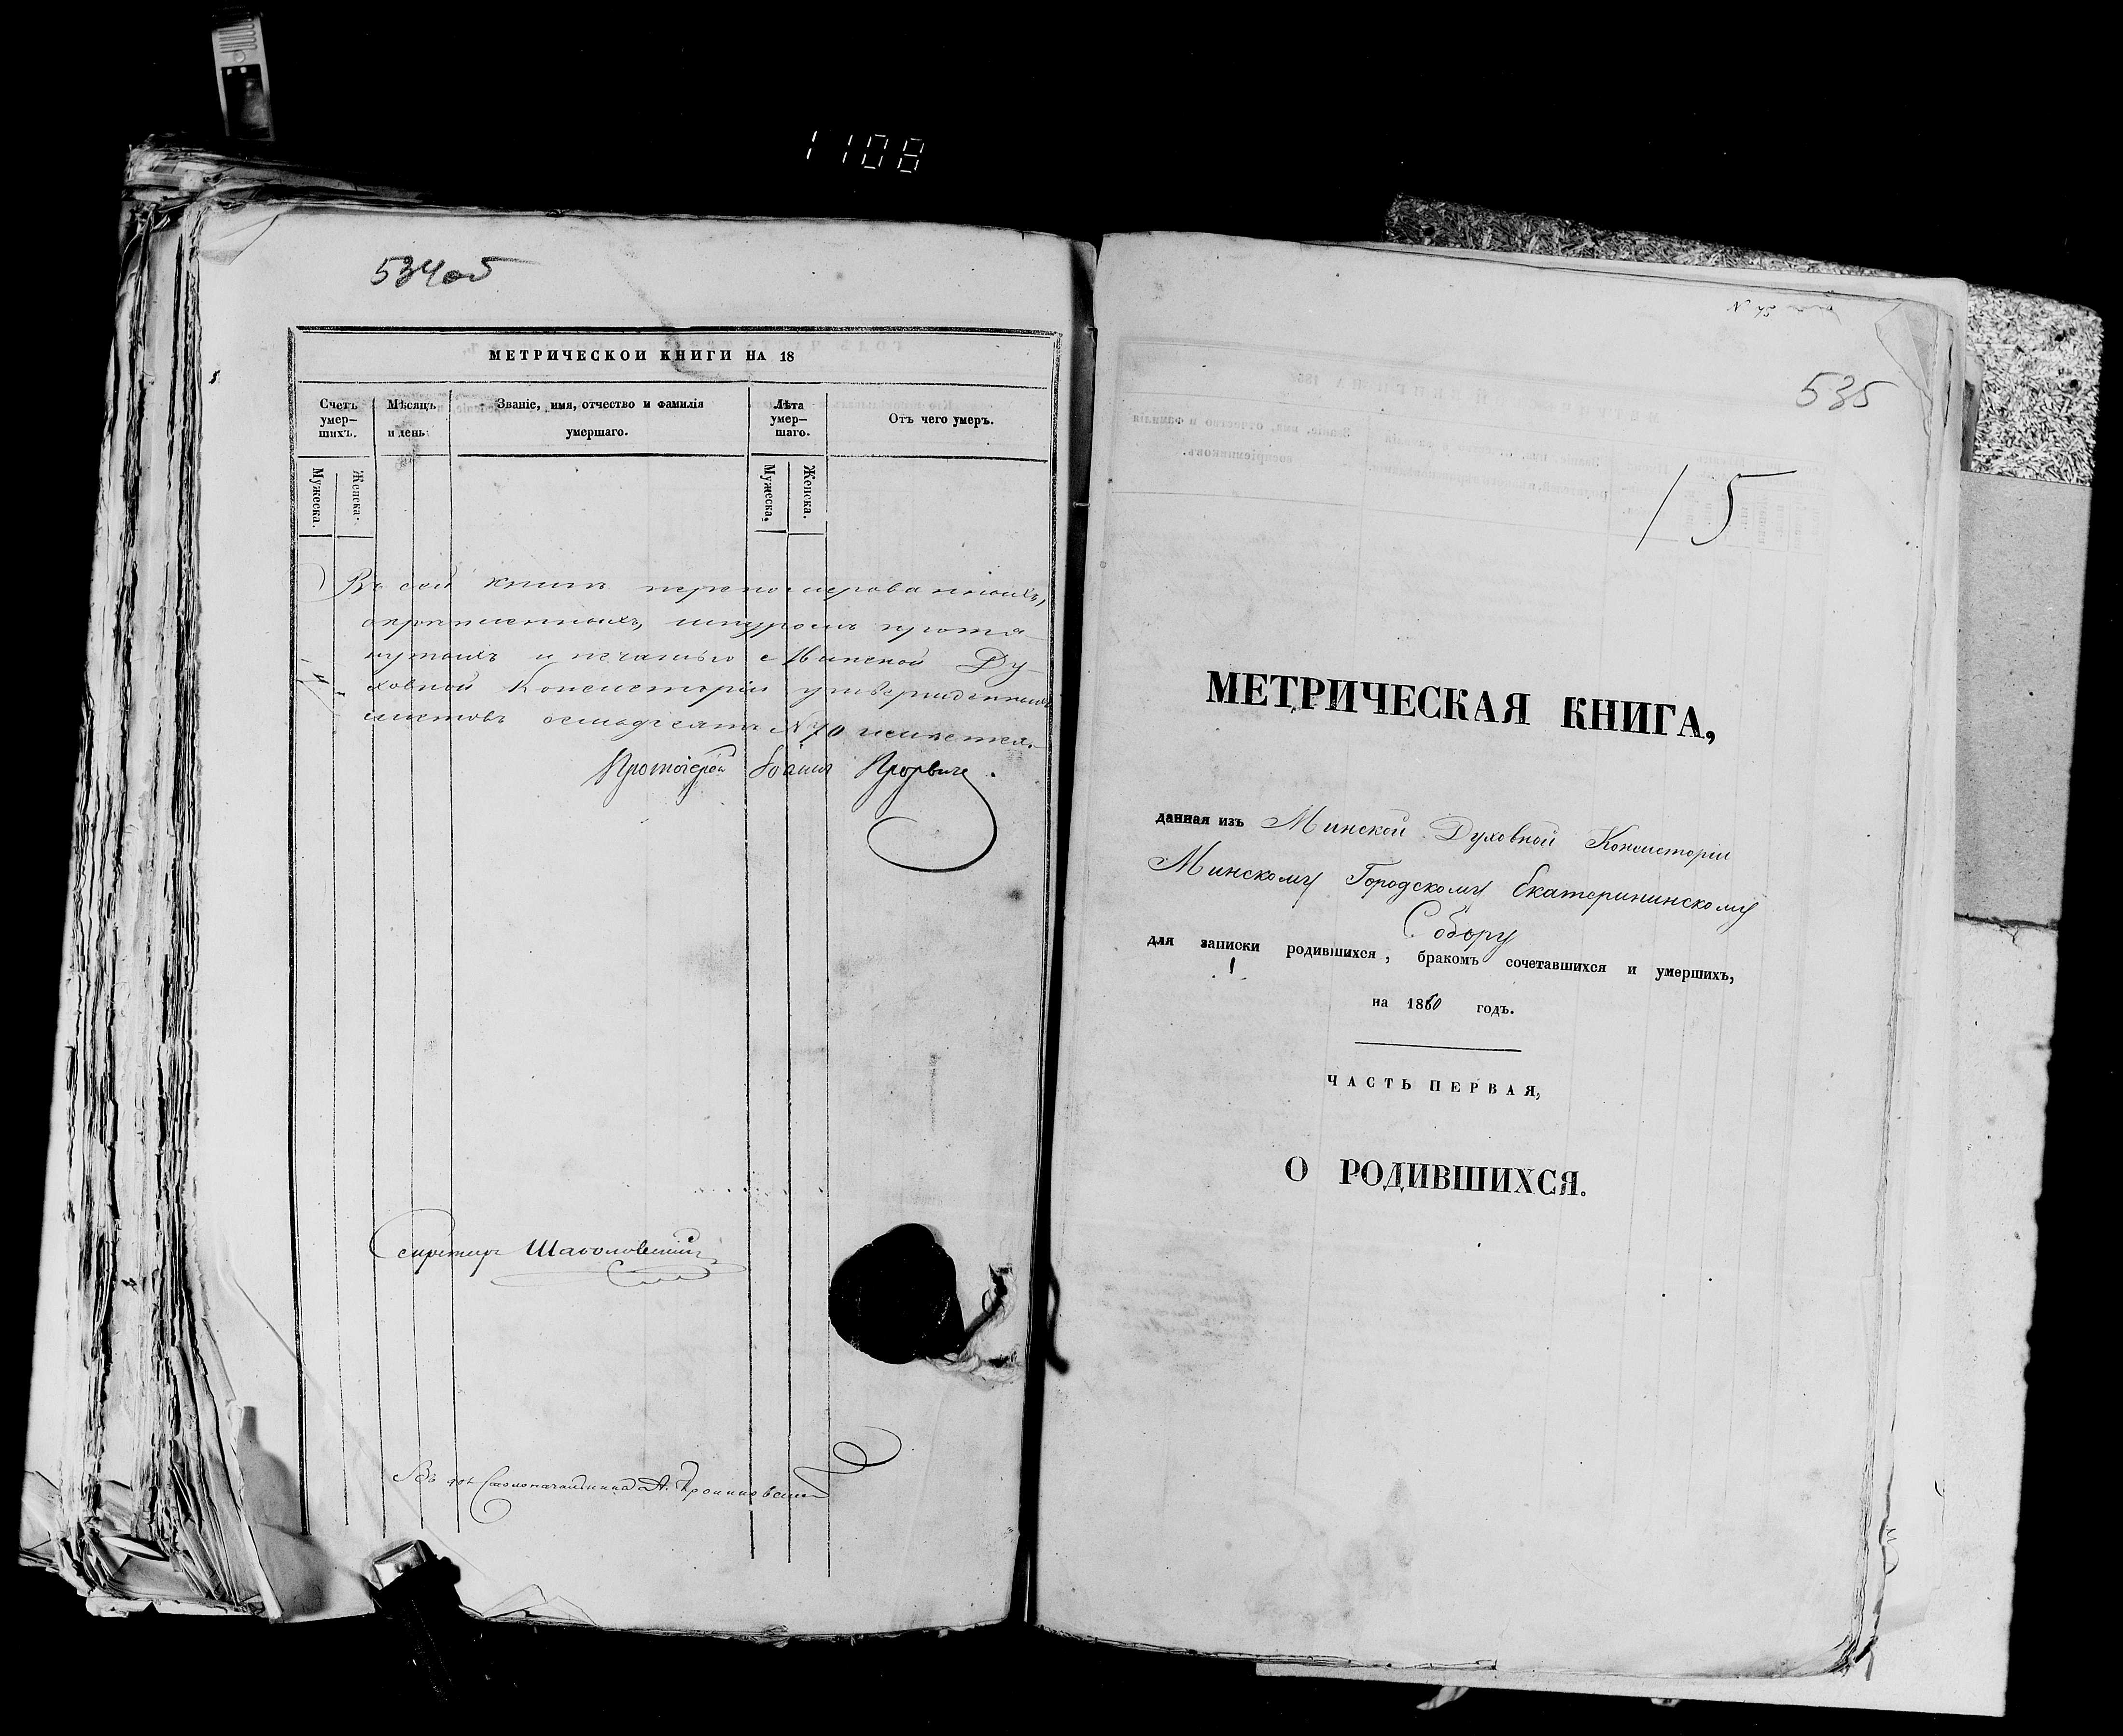 1108
534об
МЕТРИЧЕСКОИ КНИГИ НА 18
Счетъ умер—шихъ.
Мѣсяцъ и день
Званіе, имя, отчество и фамилія умершаго.
Лѣта умер—шаго.
Отъ чего умеръ.
Мужеска.
Женска.
Мужеска,
Женска.
Въ сей книгѣ перенумерованныхъ,
скрѣпленныхъ, шнуромъ протя—
нутыхъ и печатью Минской Ду—
ховной Консисторіи утвержденныхъ
листовъ осмьдесятъ
Протоіерей Іоаннъ
Секретарь
Столоначальника А.
535
15
МЕТРИЧЕСКАЯ КНИГА,
данная изъ Минской Духовной Консисторіи
Минскому Городскому Екатерининскому
Собору
для записки родившихся, бракомъ сочетавшихся и умершихъ,
на 1860 годъ.
ЧАСТЬ ПЕРВАЯ,
О РОДИВШИХСЯ.